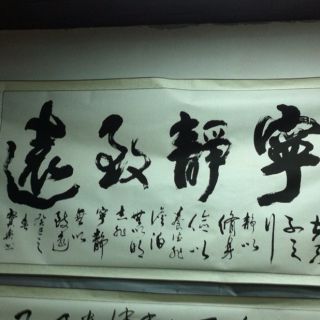 寧靜致遠
子之
行
靜以
修身
儉以
養德非
澹泊
無以明
志非
寧靜
無以
致遠